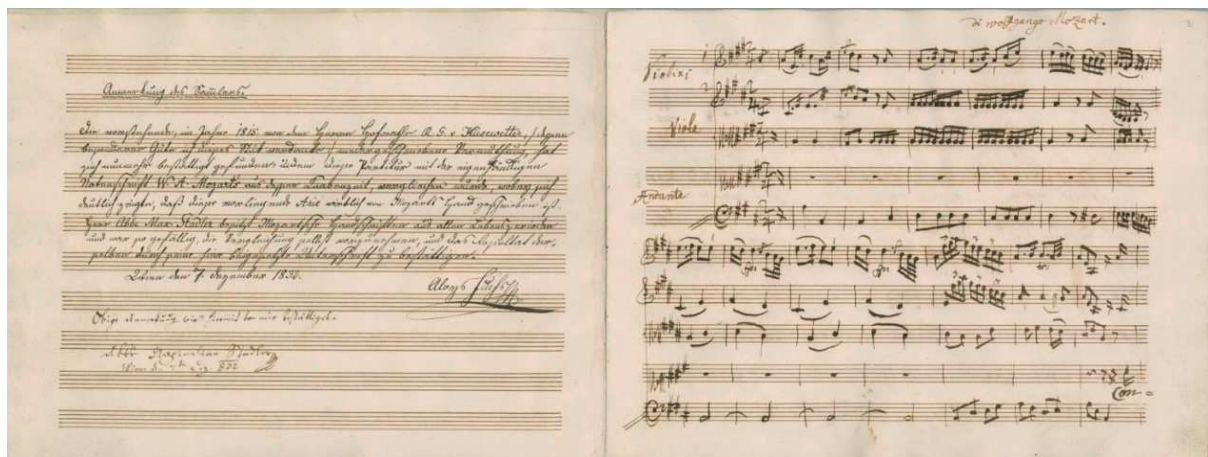 Anmerkung des Sammlers.
Die vorstehende, im Jahre 1815 von dem Herrn Hofrathe R. G. v. Kiesewetter,
besonderer Güte ich dieses
sich nunmehr bestättiget gefunden, indem diese Partitur mit der eigenhändigen
Notenschrift W. A. Mozarts aus dessen verglichen wurde, wobey sich
deutlich zeigte, daß diese vorliegende Arie wirklich von Mozarts Hand geschrieben ist.
Herr Abbé Max. Stadler besitzt Mozartsche Handschriften aus allen Lebensperioden
und war so gefällig, die Vergleichung selbst vorzunehmen, und das Resultat der-
selben durch seine hier beigesetzte Unterschrift zu bestättigen.
Wien den 7. Dezember 1832.
Aloys Fuchs
Obige Anmerkung wird hiemit von mir bestättiget.
Abbé Maximilian Stadler
Wien
di wolfgango Mozart.
Violini
Viole
Andante
Con =